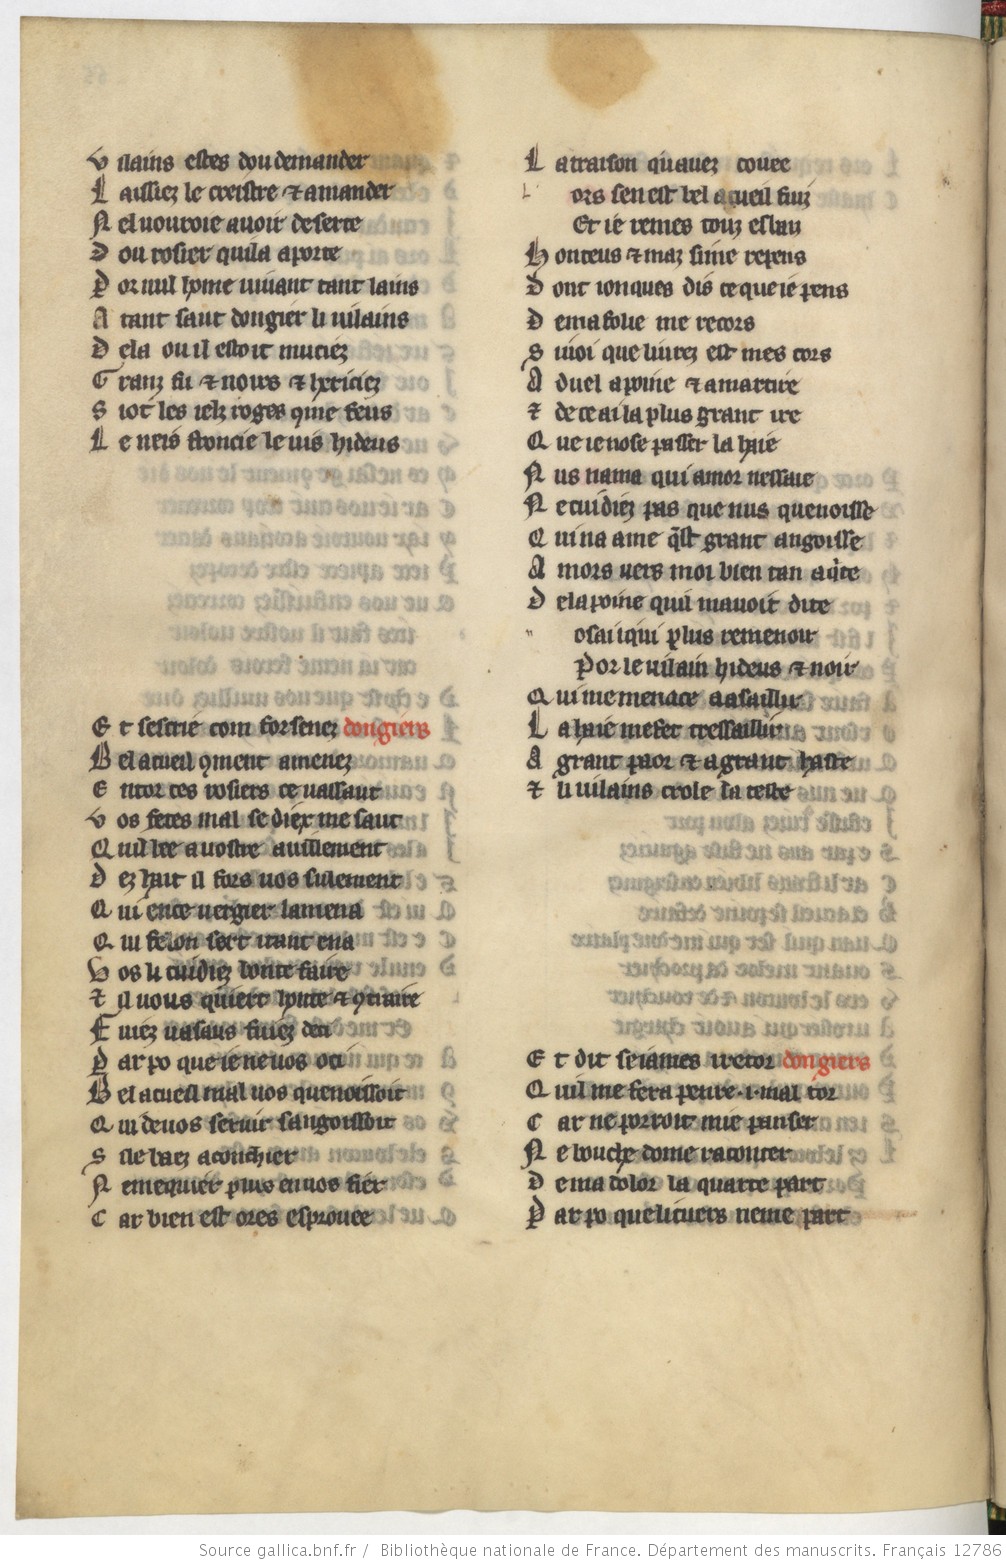 V ilains estes dou demander
L aissiez le croistre ⁊ amander
N el vouroie avoir deserte
D ou rosier quil a aporte
P or nul home vivant tant lains
A tant saut dongier li vilains
D e la ou il estoit muciez
G ranz fu ⁊ noirs ⁊ hericiez
S iot les ielz roges 9me feus
L e neis froncie le vis hideus
E t sescrie com forsenez dongiers
B el acueil 9ment amenez
E ntor ces rosiers ce vassaut
V os fetes mal se diex me saut
Q uil bee a vostre avillement
D ez hait il fors vos sulement
Q ui en ce vergier lamena
Q ui felon sert itant en a
V os li cuidiez bonte faire
⁊ il vous quiert honte ⁊ 9traire
F uiez vasaus fuiez deci
P ar po que ie ne vos oci
B el acueil mal vos quenoissoit
Q ui de vos servir sangoissoit
S ile baez a conchier
N e me quier plus en vos fier
C ar bien est ores esprouee
L a traison quavez couee
l ors sen est bel acueil fuiz
Et ie remes touz esbaiz
H onteus ⁊ maz si me repens
D ont ionques dis ce que ie pens
D e ma folie me recors
S i voi que livrez est mes cors
A duel a poine ⁊ a martire
⁊ de ce ai la plus grant ire
Q ue ie nose passer la haie
N us na ma qui amor nessaie
N e cuidiez pas que nus quenoisse
Q ui na ame q̃st grant angoisse
A mors vers moi bien tan aq̇te
D e la poine quil mavoit dite
osai iqui plus remenoir
Por le vilain hideus ⁊ noir
Q ui me menace a asaillir
L a haie me fet tressaillir
A grant paor ⁊ a grant haste
⁊ li vilains crole la teste
E t dit se iames i retor dongiers
Q uil me fera penre .i. mal tor
C ar ne porroit mie panser
N e bouche dome raconter
D e ma dolor la quarte part
P ar po que li cuers ne me part
Source gallica.bnf.fr / Bibliothèque nationale de France. Département des manuscrits. Français 12786